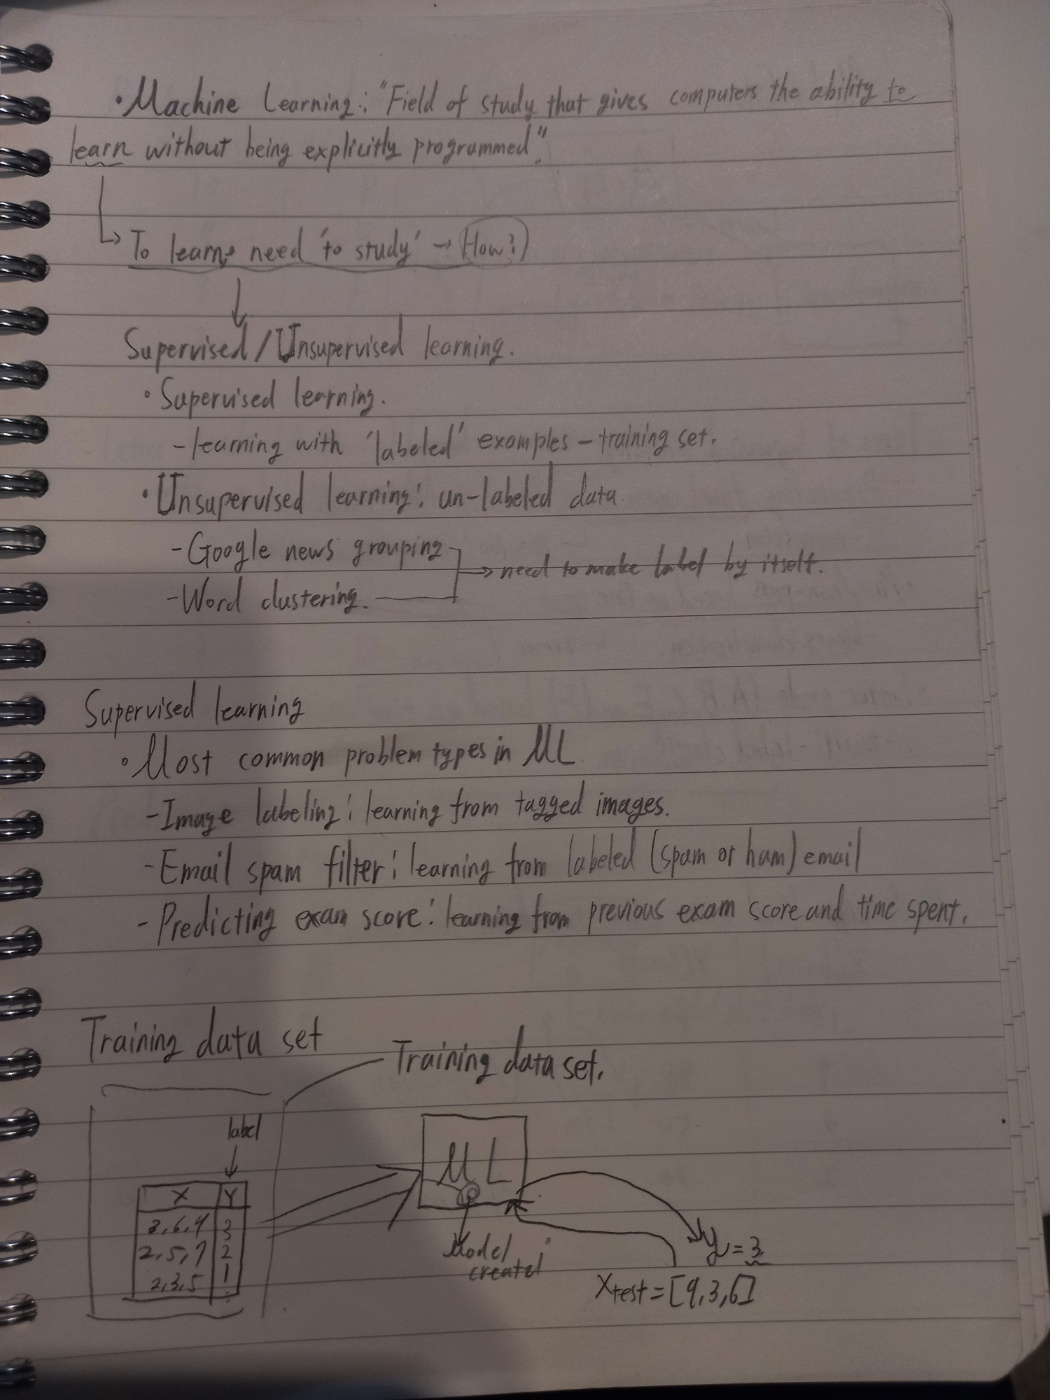 • Machine Learning: "Field of study that gives computers the ability to
learn without being explicitly programmed".
To learn, need 'to study' → How?
Supervised / Unsupervised learning.
• Supervised learning.
- learning with 'labeled' examples - training set.
• Unsupervised learning: un-labeled data
- Google news grouping
→ need to make label by itself.
- Word clustering.
Supervised learning
• Most common problem types in ML
- Image labeling: learning from tagged images.
- Email spam filter: learning from labeled (spam or ham) email
- Predicting exam score: learning from previous exam score and time spent.
Training data set
Training data set.
label
ML
X Y
3,6,9 3
2,5,7 2
2,3,5 1
Model
create!
y = 3
Xtest = [9,3,6]